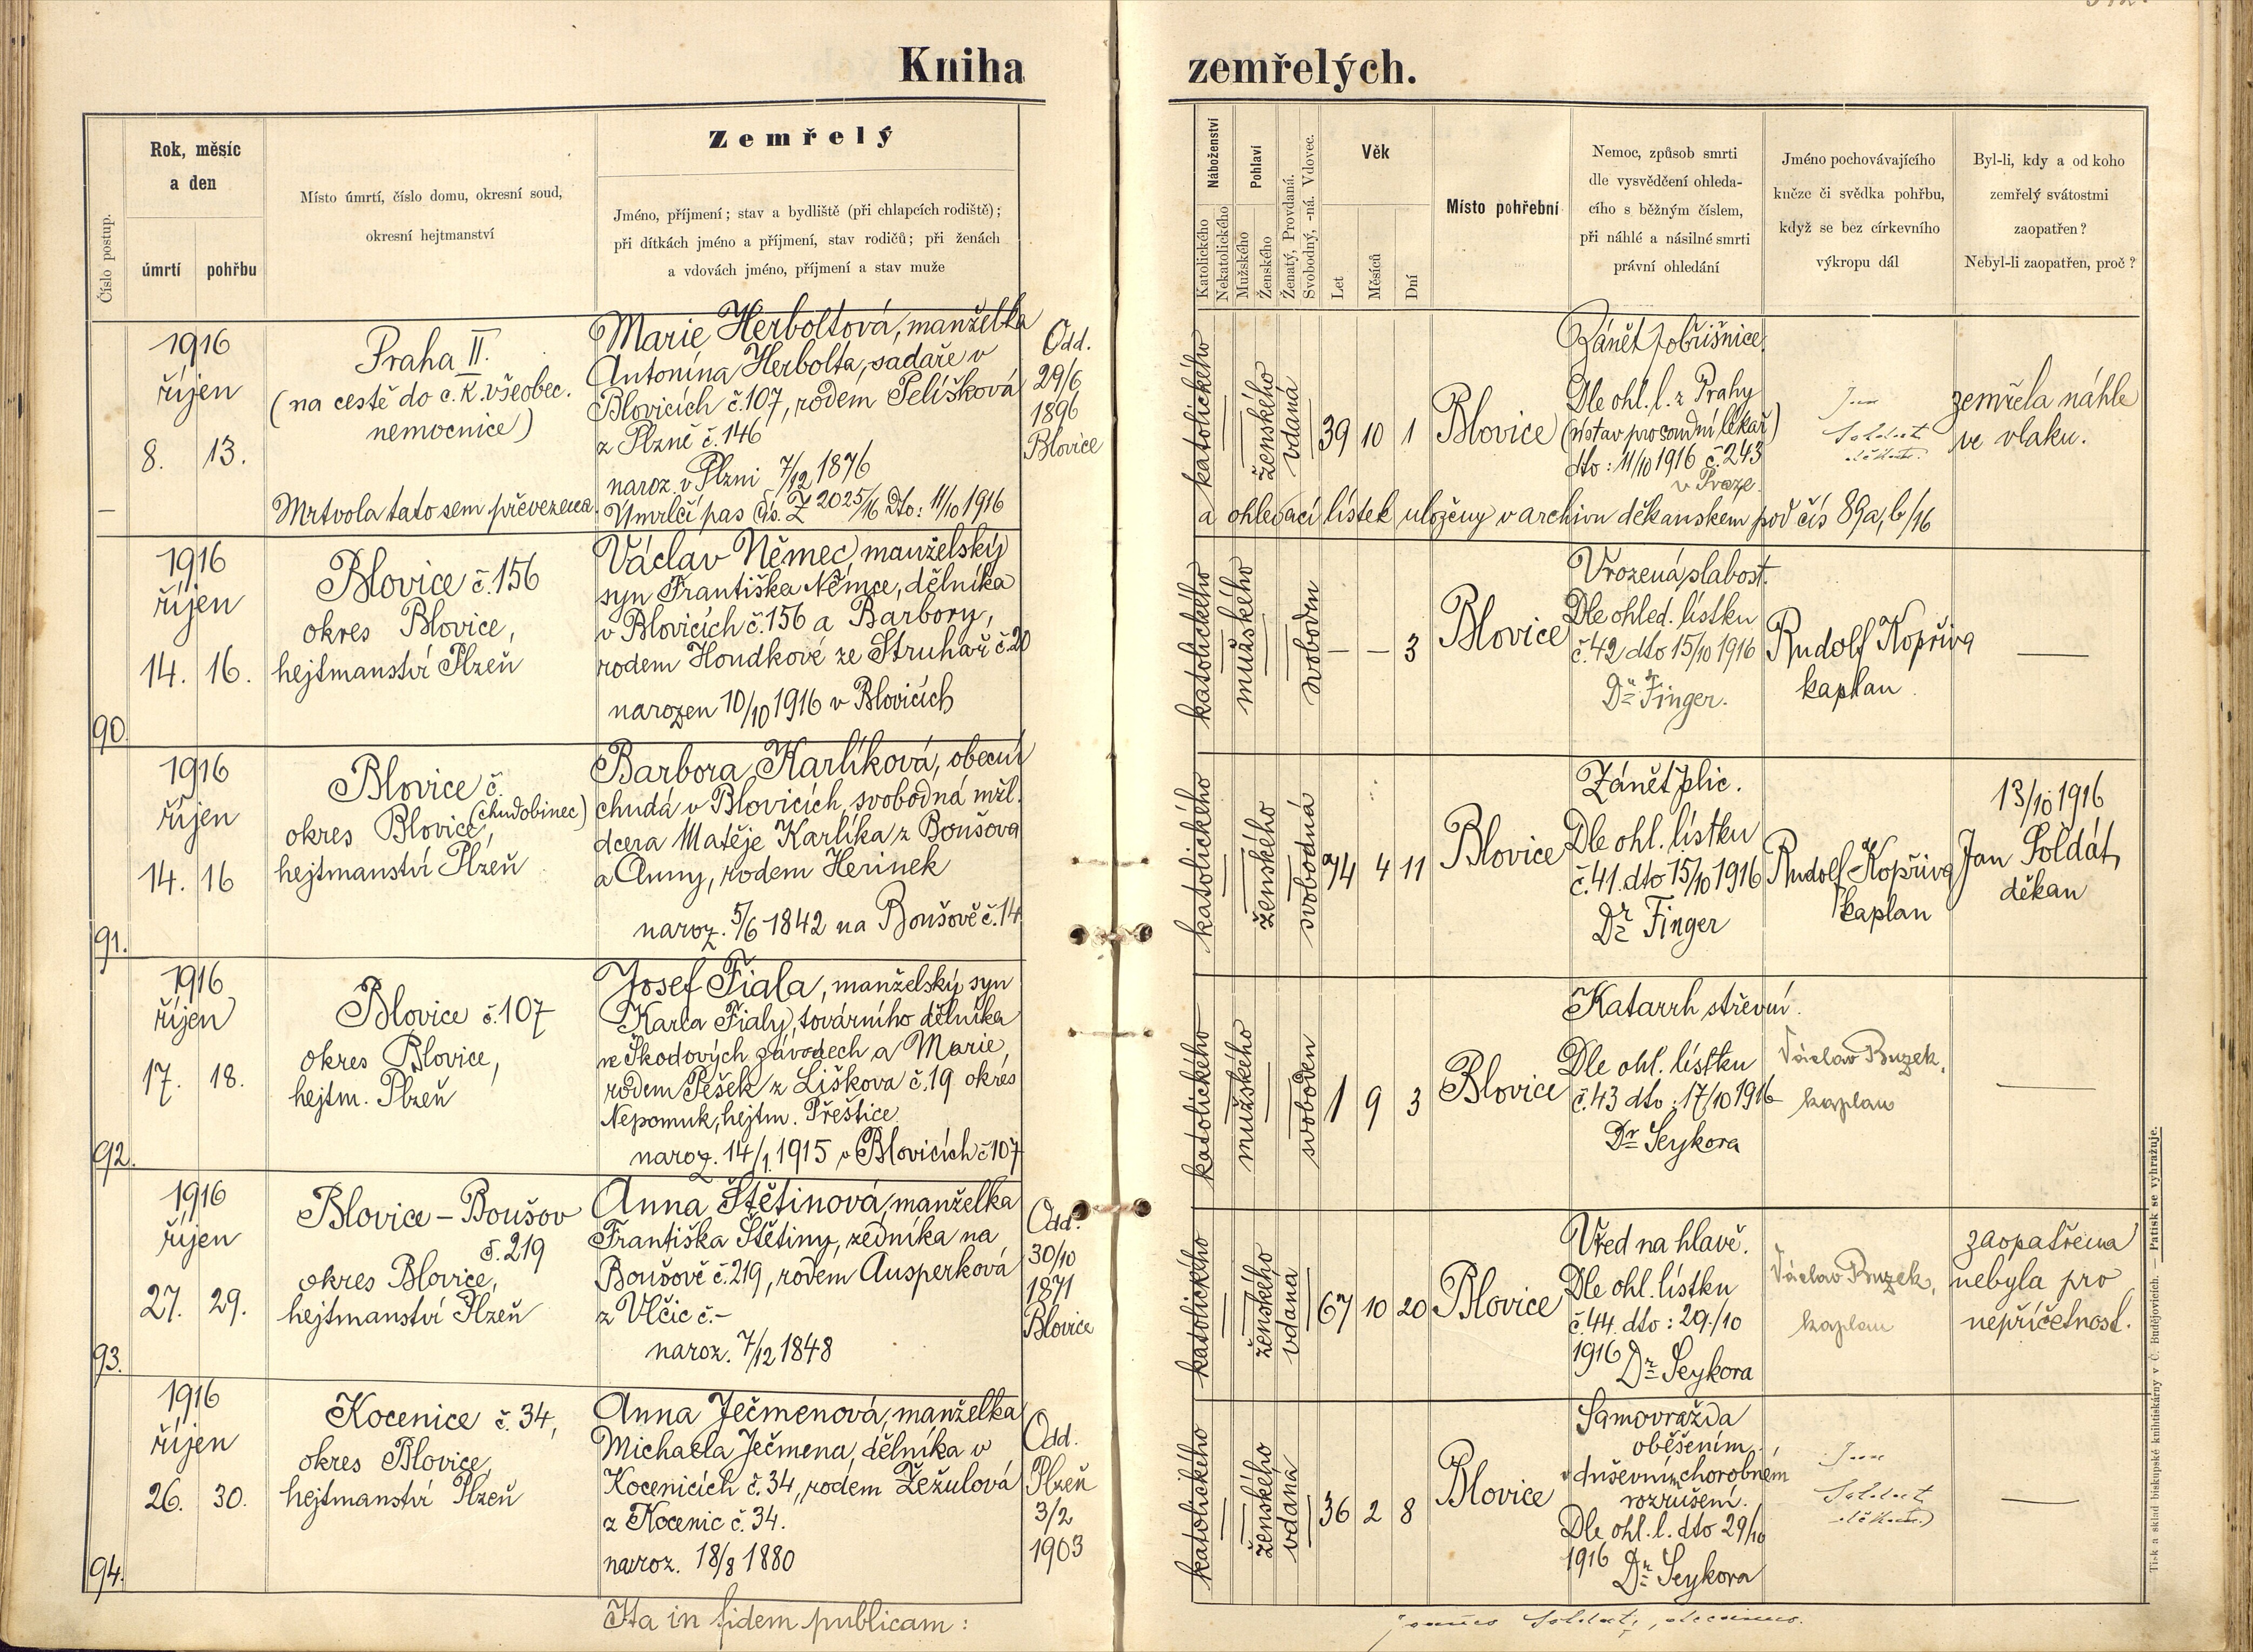 Kniha zemřelých.
Číslo postup.
Rok, měsíc
a den
úmrtí pohřbu
Místo úmrtí, číslo domu, okresní soud,
okresní hejtmanství
Zemřelý
Jméno, příjmení; stav a bydliště (při chlapcích rodiště);
při dítkách jméno a příjmení, stav rodičů; při ženách
a vdovách jméno, příjmení a stav muže
Náboženství
Katolického
Nekatolického
Pohlaví
Mužského
Ženského
Ženatý, Provdaná.
Svobodný, -ná. Vdovec.
Věk
Let
Měsíců
Dní
Místo pohřební
Nemoc, způsob smrti
dle vysvědčení ohleda-
cího s běžným číslem,
při náhlé a násilné smrti
právní ohledání
Jméno pochovávajícího
kněze či svědka pohřbu,
když se bez církevního
výkropu dál
Byl-li, kdy a od koho
zemřelý svátostmi
zaopatřen?
Nebyl-li zaopatřen, proč?
1916
říjen
8. 13.
Praha II.
(na cestě do c. k. všeobec.
nemocnice)
Mrtvola tato sem převezena.
Marie Herboltová, manželka
Antonína Herbolta, sadaře v
Blovicích č. 107, rodem Pelíšková
z Plzně č. 146
naroz. v Plzni 7/12 1876
Úmrlčí pas čís. Z 2025/16 Dto: 11/10 1916
Odd.
29/6
1896
Blovice
katolického
ženského
vdaná
39 10 1
Blovice
Zánět pobřišnice.
Dle ohl. l. z Prahy
(ústav pro soudní lékař)
dto: 11/10 1916 č. 243
v Praze.
Jan
Soldát
děkan.
zemřela náhle
ve vlaku.
a ohledací lístek uloženy v archivu děkanském pod čís 89a, b/16
90.
1916
říjen
14. 16.
Blovice č. 156
okres Blovice,
hejtmanství Plzeň
Václav Němec, manželský
syn Františka Němce, dělníka
v Blovicích č. 156 a Barbory,
rodem Houdkové ze Struhař č. 20
narozen 10/10 1916 v Blovicích
katolického
mužského
svoboden
— — 3
Blovice
Vrozená slabost.
Dle ohled. lístku
č. 42 dto 15/10 1916
Dr Finger.
Rudolf Kopřiva
kaplan.
—
91.
1916
říjen
14. 16
Blovice č.
(chudobinec)
okres Blovice,
hejtmanství Plzeň
Barbora Karlíková, obecní
chudá v Blovicích, svobodná mžl.
dcera Matěje Karlíka z Boušova
a Anny, rodem Herinek
naroz. 5/6 1842 na Boušově č. 14
katolického
ženského
svobodná
74 4 11
Blovice
Zánět plic.
Dle ohl. lístku
č. 41. dto 15/10 1916
Dr Finger
Rudolf Kopřiva
kaplan
13/10 1916
Jan Soldát,
děkan
92.
1916
říjen
17. 18.
Blovice č. 107
okres Blovice,
hejtm. Plzeň
Josef Fiala, manželský syn
Karla Fialy, továrního dělníka
ve Škodových závodech a Marie,
rodem Pešek z Liškova č. 19 okres
Nepomuk, hejtm. Přeštice.
naroz. 14/1. 1915 v Blovicích č 107
katolického
mužského
svoboden
1 9 3
Blovice
Katarrh střevní.
Dle ohl. lístku
č. 43 dto: 17/10 1916
Dr Seykora
Václav Buzek,
kaplan
—
93.
1916
říjen
27. 29.
Blovice – Boušov
č. 219
okres Blovice,
hejtmanství Plzeň
Anna Štětinová, manželka
Františka Štětiny, zedníka na
Boušově č. 219, rodem Ausperková
z Vlčic č. –
naroz. 7/12 1848
Odd.
30/10
1871
Blovice
katolického
ženského
vdaná
67 10 20
Blovice
Vřed na hlavě.
Dle ohl. lístku
č. 44. dto: 29./10
1916 Dr Seykora
Václav Buzek,
kaplan
zaopatřena
nebyla pro
nepříčetnost.
94.
1916
říjen
26. 30.
Kocenice č. 34,
okres Blovice,
hejtmanství Plzeň
Anna Ječmenová, manželka
Michaela Ječmena, dělníka v
Kocenicích č. 34, rodem Žežulová
z Kocenic č. 34.
naroz. 18/8 1880
Odd.
Plzeň
3/2
1903
katolického
ženského
vdaná
36 2 8
Blovice
Samovražda
oběšením
v duševním chorobném
rozrušení.
Dle ohl. l. dto 29/10
1916 Dr Seykora
Jan
Soldát
děkan.
—
Ita in fidem publicam:
Tisk a sklad biskupské knihtiskárny v Č. Budějovicích. — Patisk se vyhražuje.